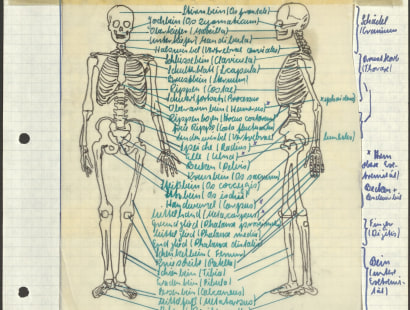 Stirnbein (Os frontale)
Jochbein (Os zygomaticum)
Oberkiefer (Maxilla)
Unterkiefer (Mandibula)
Halswirbel (Vertebrae cervicales)
Schlüsselbein (Clavicula)
Schulterblatt (Scapula)
Brustbein (Sternum)
Rippen (Costae)
Oberarmbein (Humerus)*
Rippenbogen (Arcus costarum)
Lendenwirbel (Vertebrae
lumbales)
Speiche (Radius)
Elle (Ulna)*
Becken (Pelvis)
Kreuzbein (Os sacrum)
Steißbein (Os coccygis)
Sitzbein (Os ischii)
Handwurzel (Carpus)*
Mittelhand (Metacarpus)*
Grundglied (Phalanx proximalis)
Mittelglied (Phalanx media)
Endglied (Phalanx distalis)
Schenkelbein (Femur)
Kniescheibe (Patella)
Schienbein (Tibia)
Wadenbein (Fibula)
Fersenbein (Calcaneus)
Mittelfuß (Metatarsus)
Schädel
(Cranium)
Brustkorb
(Thorax)
Becken +
Finger
(Digitus)
Bein